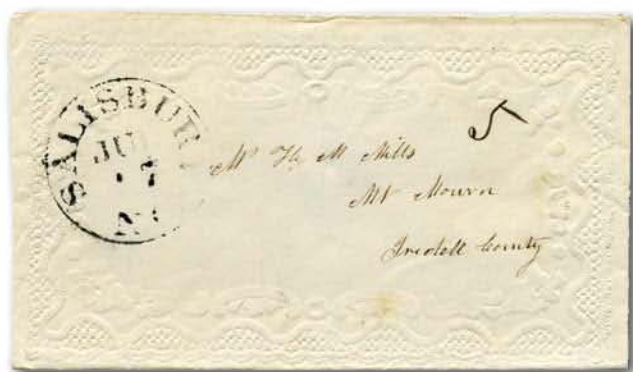 SALISBURY
JUL
17
N
5
Mr Hy M Mills
Mt Mourn
Iredell County